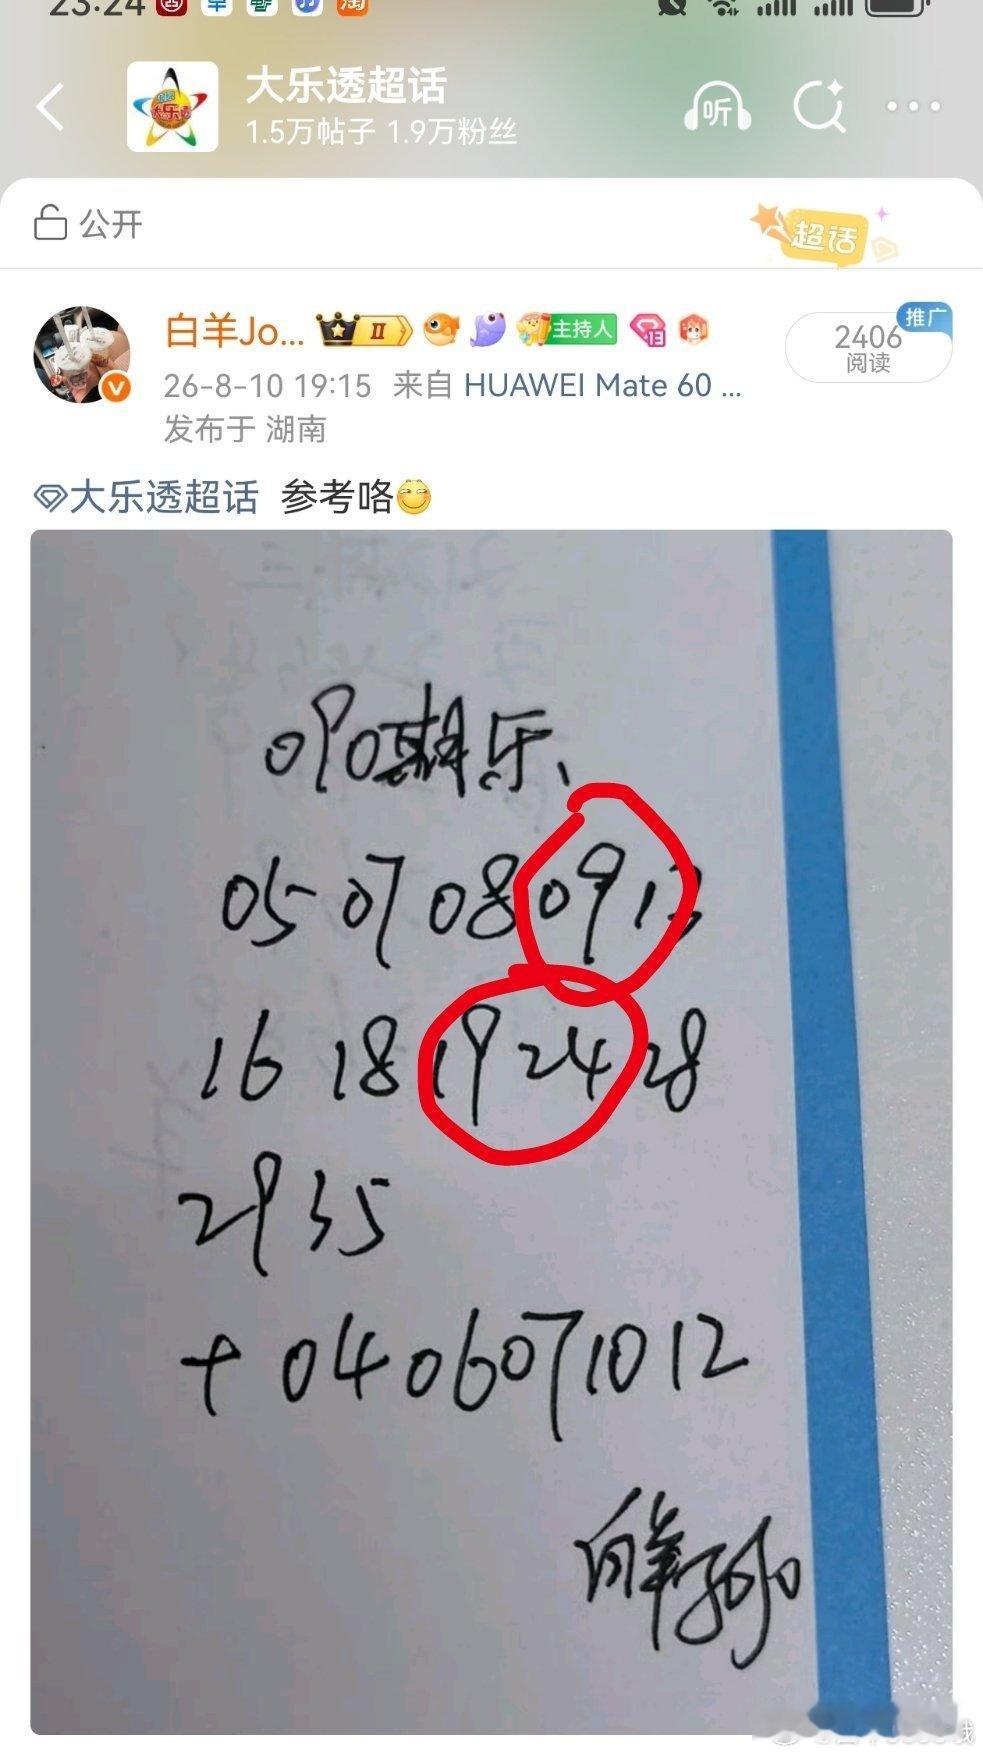 23:24
大乐透超话
听
1.5万帖子 1.9万粉丝
公开
超话
白羊Jo... II 主持人
2406
推广
阅读
26-8-10 19:15 来自 HUAWEI Mate 60 ...
发布于 湖南
大乐透超话 参考咯
090期乐、
05 07 08 09 13
16 18 19 24 28
29 35
+ 04 06 07 10 12